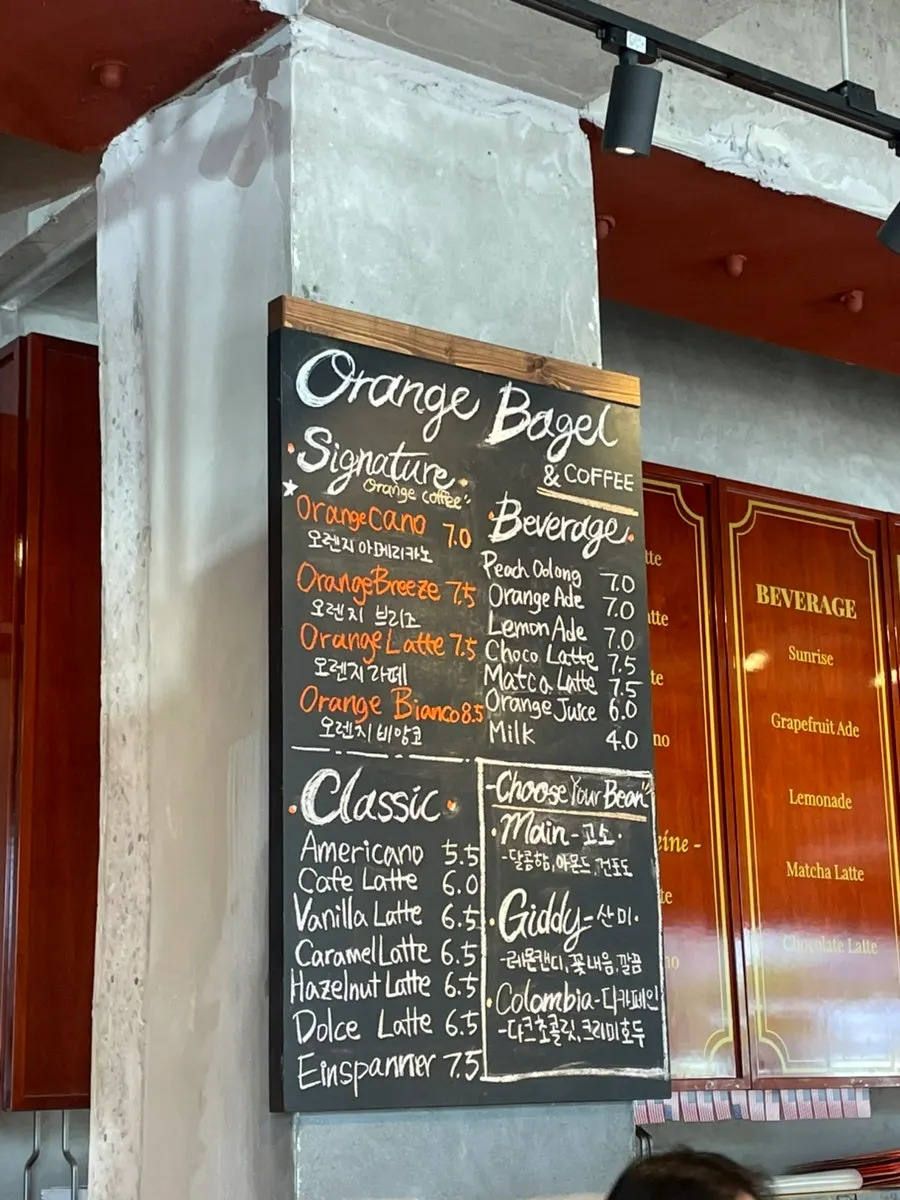 Orange Bagel
& COFFEE
Signature
Orange coffee"
OrangeCano 7.0
오렌지 아메리카노
OrangeBreeze 7.5
오렌지 브리즈
Orange Latte 7.5
오렌지 라떼
Orange Bianco 8.5
오렌지 비앙코
Beverage
Peach Oolong 7.0
Orange Ade 7.0
Lemon Ade 7.0
Choco Latte 7.5
Matca Latte 7.5
Orange Juice 6.0
Milk 4.0
Classic
Americano 5.5
Cafe Latte 6.0
Vanilla Latte 6.5
Caramel Latte 6.5
Hazelnut Latte 6.5
Dolce Latte 6.5
Einspanner 7.5
-Choose Your Bean"
·Main-고소·
-달콤함, 아몬드, 건포도
·Giddy-산미·
-레몬캔디, 꽃내음, 깔끔
·Colombia-디카페인
-다크초콜릿, 크리미호두
BEVERAGE
Sunrise
Grapefruit Ade
Lemonade
Matcha Latte
Chocolate Latte